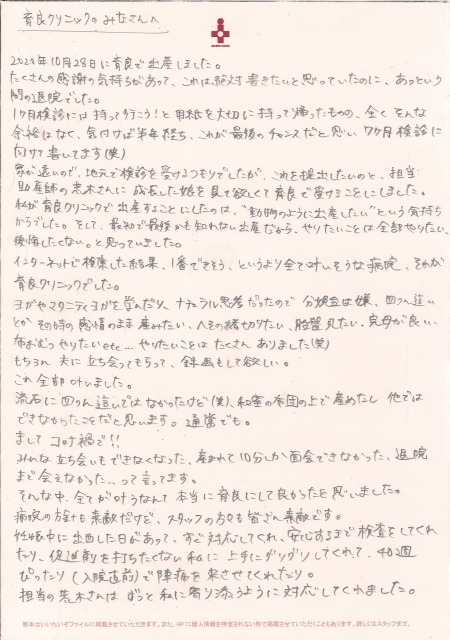 育良クリニックのみなさんへ
2020年10月28日に育良で出産しました。
たくさんの感謝の気持ちがあって、これは絶対書きたいと思っていたのに、あっという
間の退院でした。
1ヶ月検診には持って行こう!と用紙を大切に持って帰ったものの、全くそんな
余裕はなく、気付けば半年経ち、これが最後のチャンスだと思い7ヶ月検診に
向けて書いてます(笑)
家が遠いので、地元で検診を受けるつもりでしたが、これを提出したいのと、担当
助産師の荒木さんに成長した娘を見て欲しくて育良で受けることにしました。
私が育良クリニックで出産することにしたのは、"動物のように出産したい"という気持ち
からでした。そして、最初で最後かも知れない出産だから、やりたいことは全部やりたい、
後悔したくない。と思っていました。
インターネットで検索した結果、1番できそう、というより全て叶いそうな病院、それが
育良クリニックでした。
ヨガやマタニティヨガを学んだり、ナチュラル思考だったので分娩台は嫌、四つん這い
とかその時の感情のまま産みたい、へその緒切りたい、胎盤見たい、完母が良い、
布おむつやりたいetc...やりたいことはたくさんありました(笑)
もちろん夫に立ち会ってもらって、録画もして欲しい。
これ全部叶いました。
流石に四つん這いではなかったけど(笑)、和室の布団の上で産めたし他では
できなかったことだと思います。通常でも。
ましてコロナ禍で!!
みんな立ち会いもできなくなった、産まれて10分しか面会できなかった、退院
まで会えなかった...って言ってます。
そんな中、全てが叶うなんて本当に育良にして良かったと思いました。
病院の方針も素敵だけど、スタッフの方々も皆さん素敵です。
妊娠中に出血した日があって、すぐ対応してくれ、安心するまで検査をしてくれ
たり、促進剤を打ちたくない私に上手にグリグリしてくれて、40週
ぴったり(入院直前)で陣痛を来させてくれたり。
担当の荒木さんはずっと私に寄り添うように対応してくれました。
原本はいいたいぞファイルに掲載させていただきます。また、HPに個人情報を特定されない形で掲載させていただくこともあります。詳しくはスタッフまで。